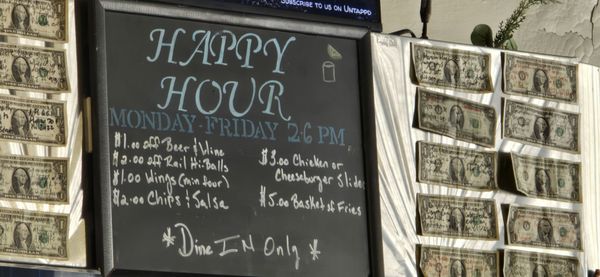 Subscribe to us on Untappd
HAPPY
HOUR
MONDAY-FRIDAY 2-6 PM
$1.00 off Beer & Wine
$2.00 off Rail Hi-Balls
$1.00 Wings (min four)
$2.00 Chips & Salsa
$3.00 Chicken or
Cheeseburger Slider
$5.00 Basket of Fries
* Dine IN Only *